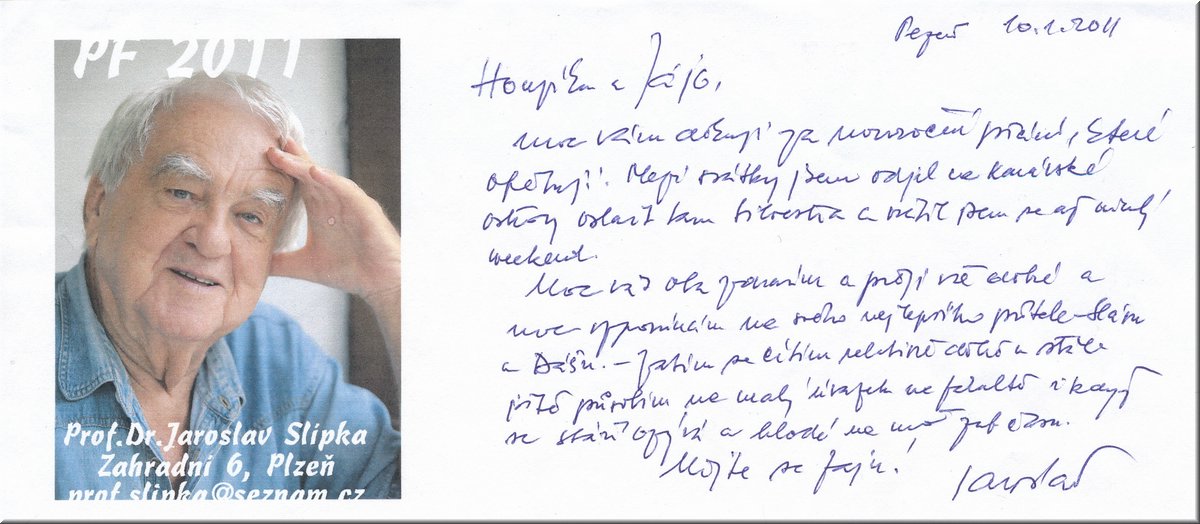 PF 2011
Prof.Dr.Jaroslav Slípka
Zahradní 6, Plzeň
prof.slipka@seznam.cz
10.1.2011
a Jájo,
moc Vám děkuji za novoroční přání, které
opětuji. Mezi svátky jsem odjel na Kanárské
ostrovy oslavit tam Silvestra a vrátil jsem se až minulý
weekend.
Moc Vás oba zdravím a přeji vše dobré a
moc vzpomínám na svého nejlepšího přítele
a Dášu. – Zatím se cítím relativně dobře a stále
ještě působím na malý úvazek na fakultě i když
se stáří ozývá a na mě
Mějte se fajn!
Jaroslav